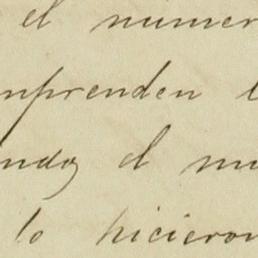 el numer
mprenden l
ndoz el mu
lo hicieron